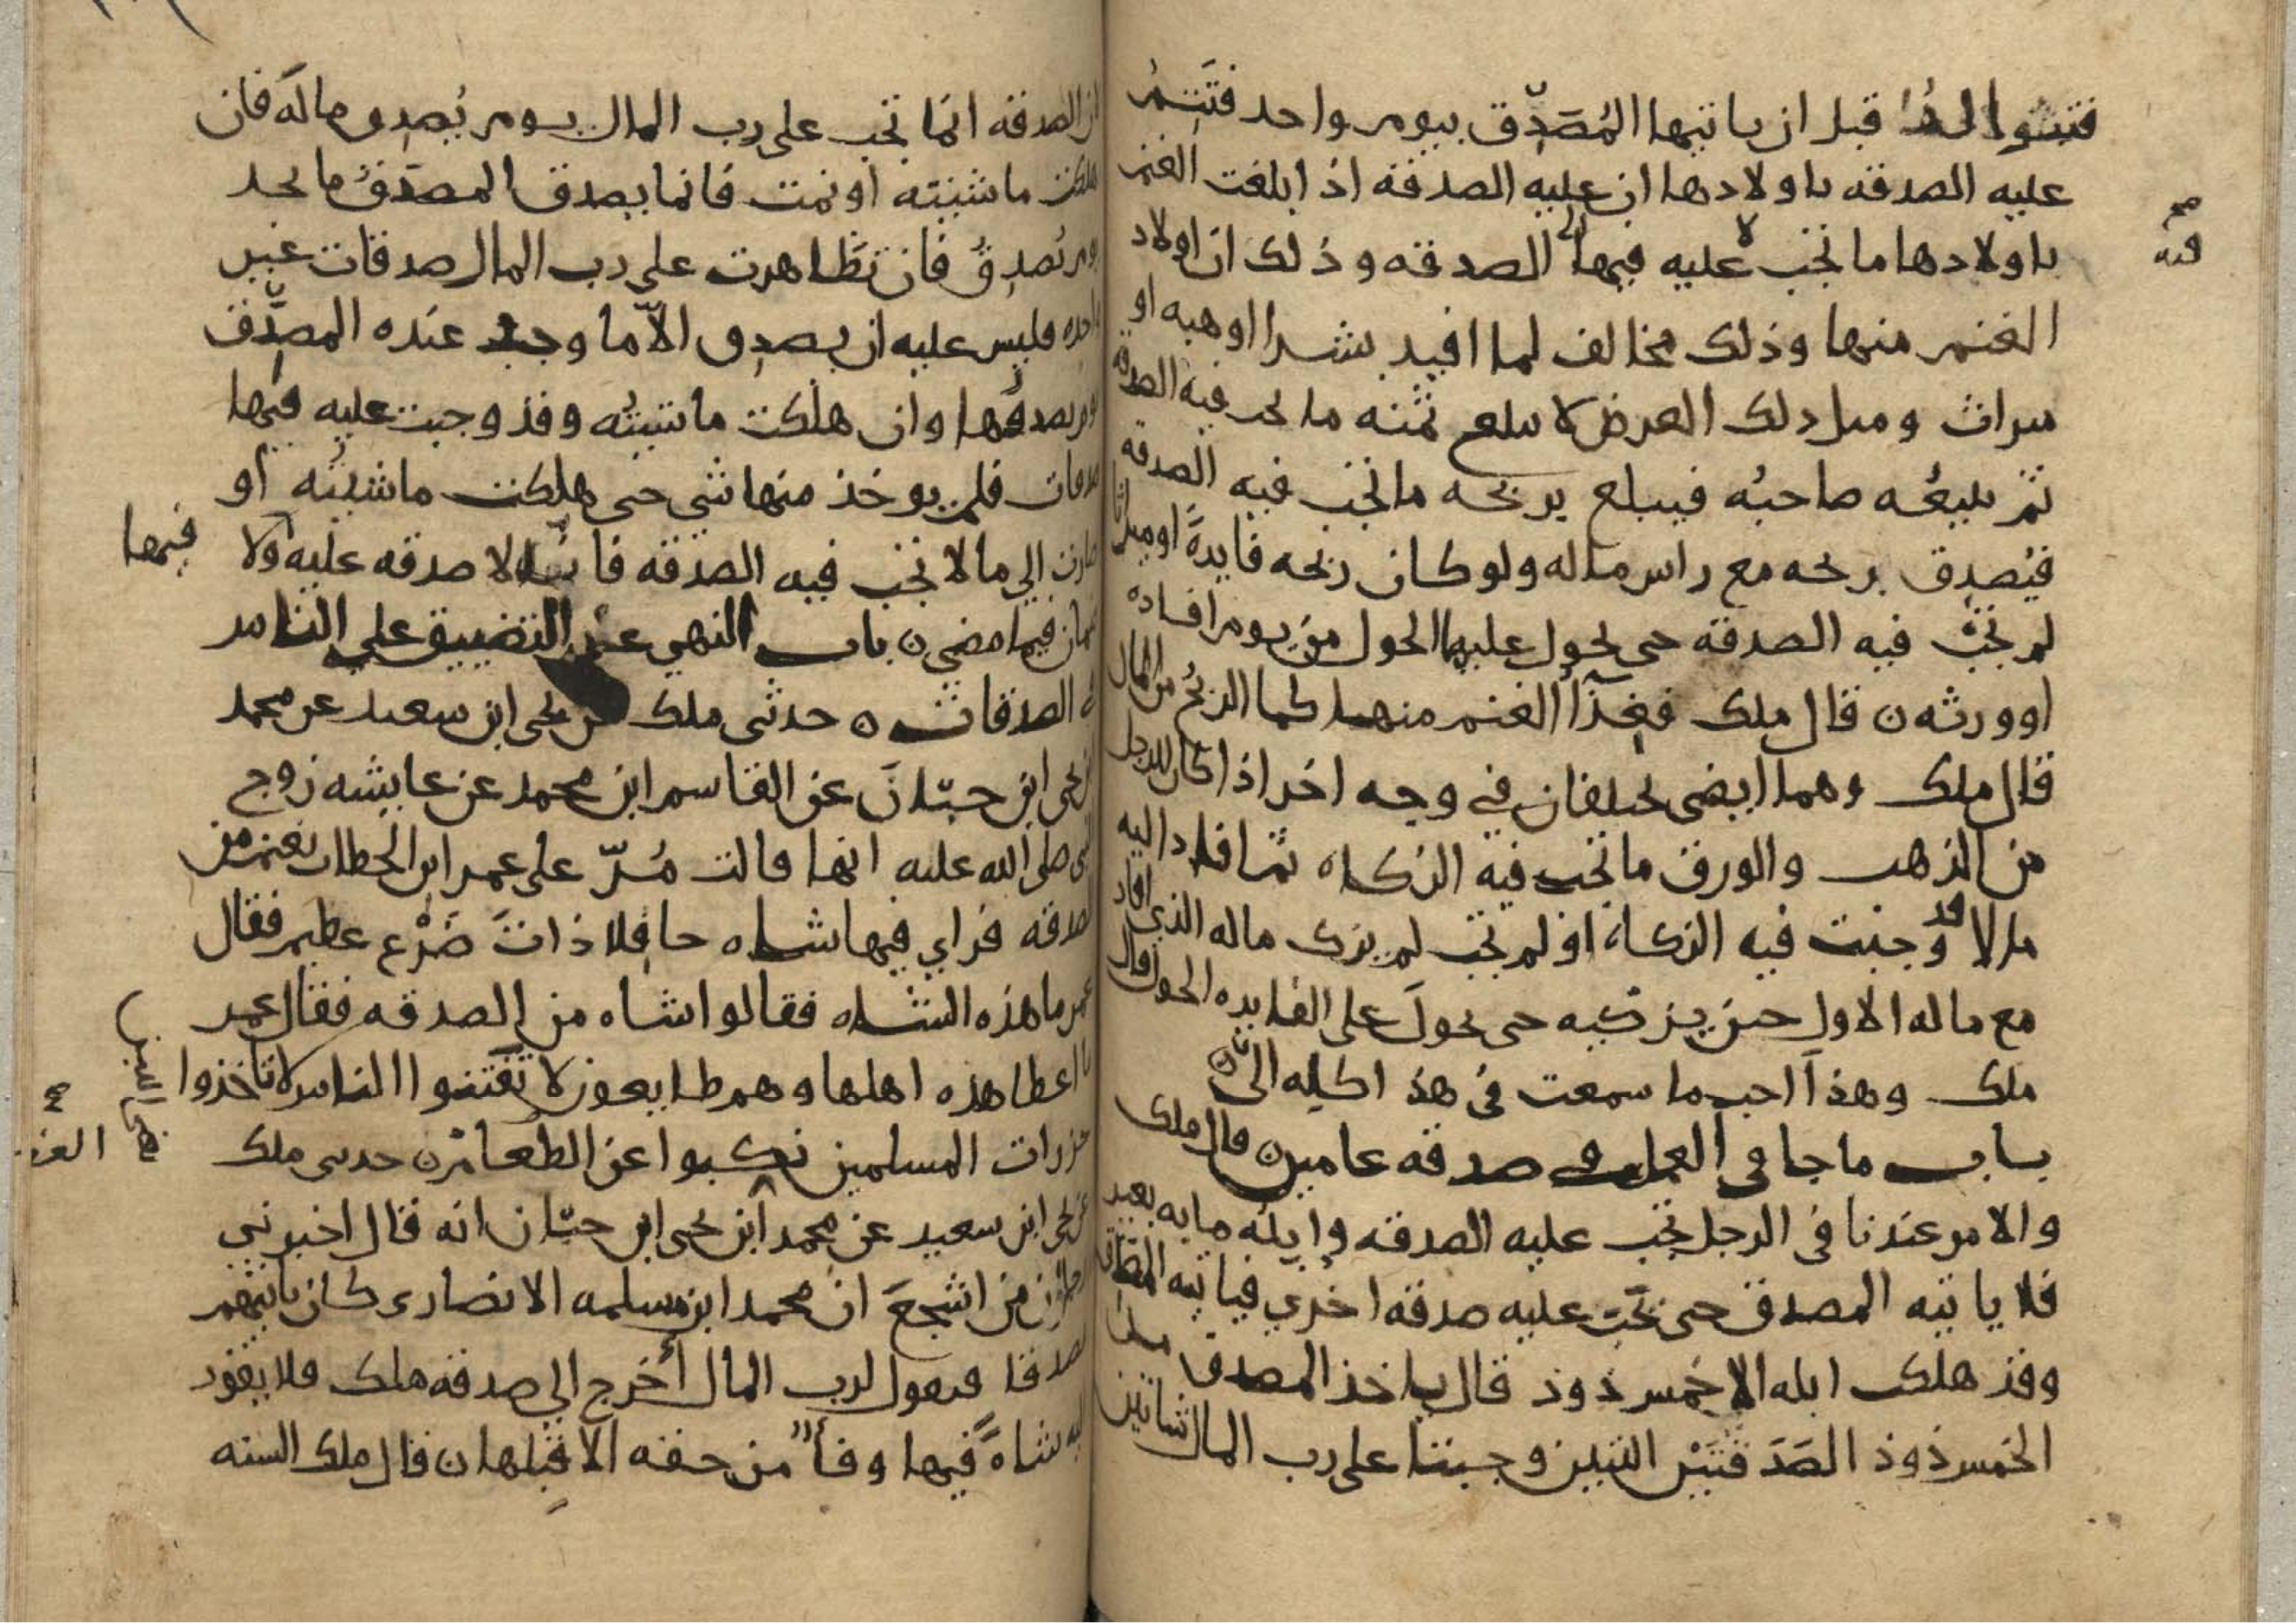 فتتوالد قبل ان ياتيها المُصَدِّق بيوم واحد فتَتِمُ
عليه الصدقه باولادها ان عليه الصدقه اذا بلغت الغنم
باولادها ما تجب عليه فيها الصدقه وذلك ان اولاد
الغنم منها وذلك مخالف لما افيد بشرا او هبه او
ميراث ومثل ذلك العرض لا يبلغ ثمنه ما تجب فيه الصدقه
ثم يبيعُه صاحبُه فيبلغ بربحه ما تجب فيه الصدقه
فيُصدِق ربحه مع راس ماله ولو كان ربحه فايدةً او ميراثا
لم تجب فيه الصدقه حتى يحول عليها الحول من يوم افاده
او ورثه ن قال ملك فغِذَآ الغنم منها كما الربحُ من المال
قال ملك وهما ايضى يختلفان في وجه اخر اذا كان للرجل
من الذهب والورق ما تجب فيه الزكاه ثم افاد اليه
مالا قد وجبت فيه الزكاة او لم تجب لم يزك ماله الذي افاد
مع ماله الاول حين يزكيه حتى يحولَ على الفايده الحول قال
ملك وهذا احب ما سمعت في هذا كله الي ن
باب ما جا في العمل في صدقه عامين ن قال ملك
والامر عندنا في الرجل تجب عليه الصدقه وابله مايه بعير
فلا ياتيه المصدق حتى تجب عليه صدقه اخري فياتيه المصدق
وقد هلكت ابله الا خمس ذود قال ياخذ المصدق من
الخمس ذود الصَدَقَتَيْن اللتين وجبتا على رب المال شاتين
ان الصدقه انما تجب على رب المال يوم يُصدِق ماله فان
هلكت ماشيته او نمت فانما يصدق المصَدِقُ ما يجد
يوم يُصدِقُ فان تظاهرت على رب المال صدقات غير
واحده فليس عليه ان يصدِق الاّ ما وجد عنده المصدِّق
يوم يصدقها وان هلكت ماشيتُه وقد وجبت عليه فيها
صدقات فلم يوخذ منها شي حتى هلكت ماشيتُه او
صارت الى ما لا تجب فيه الصدقه فانه لا صدقه عليه ولا
فيها
ضمان فيما مضى ن باب النهي عن التضييق على الناس
في الصدقات ه حدثني ملك عن يحيى ابن سعيد عن محمد
بن يحيى ابن حبّان عن القاسم ابن محمد عن عايشه زوج
النبي صلى الله عليه انها قالت مُرّ على عمر ابن الخطاب بغنم من
الصدقه فراي فيها شاه حافلا ذاتَ ضَرْعٍ عظيم فقال
عمر ما هذه الشاه فقالوا شاه من الصدقه فقال عمر
ما اعطا هذه اهلها وهم طايعون لا تَفتنوا الناس لا تاخذوا
حزرات المسلمين نكبوا عن الطعام ن حدثني ملك
عن يحيى ابن سعيد عن محمد ابن يحيى ابن حبّان انه قال اخبرني
رجلان من اشجعَ ان محمد ابن مسلمه الانصاري كان ياتيهم
مصدقا فيقول لرب المال أخرج الي صدقه مالك فلا يقود
اليه شاةً فيها وفاً من حقه الا قبلها ن قال ملك السنه